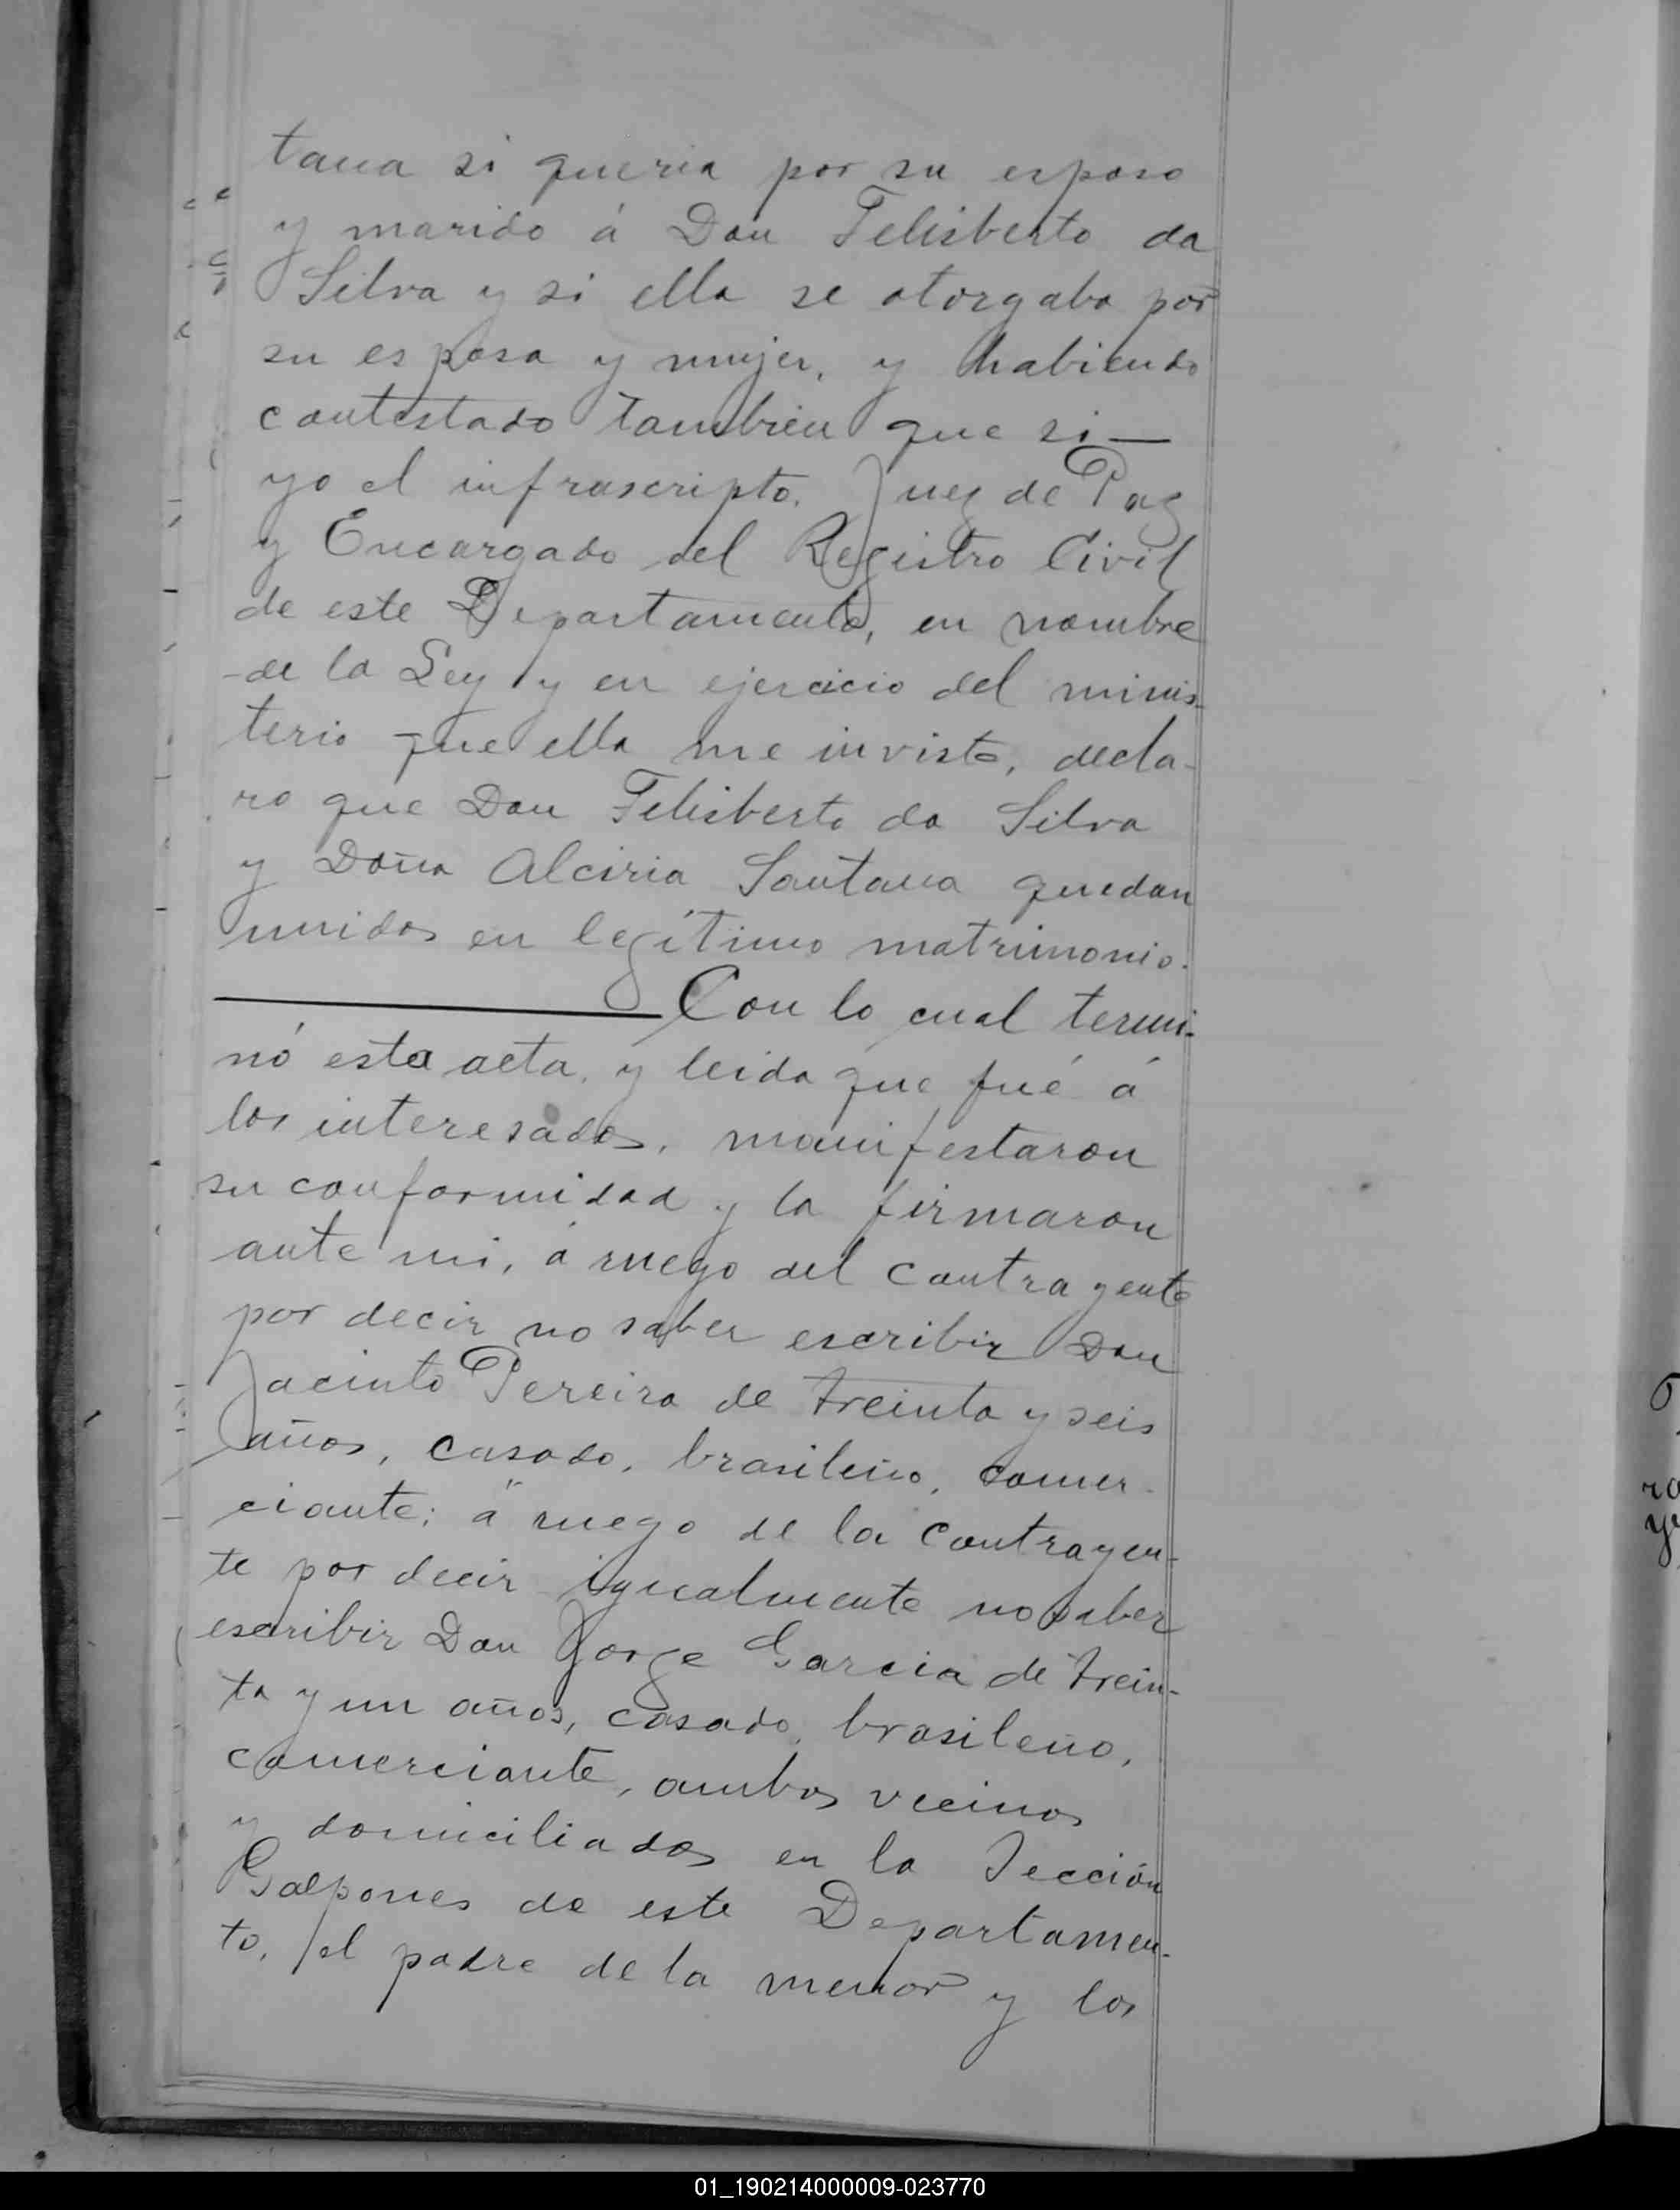 tana si queria por su esposo
y marido á Don Felisberto da
Silva y si ella se otorgaba por
su esposa y mujer, y habiendo
contestado tambien que si —
yo el infrascripto. Juez de Paz
y Encargado del Registro Civil
de este Departamento, en nombre
de la Ley y en ejercicio del minis-
terio que ella me inviste, decla-
ro que Don Felisberto da Silva
y Doña Alciria Santana quedan
unidos en legítimo matrimonio.
Con lo cual termi-
nó esta acta, y leida que fué á
los interesados, manifestaron
su conformidad y la firmaron
ante mi, á ruego del contrayente
por decir no saber escribir Don
Jacinto Pereira de treinta y seis
años, casado, brasileño, comer-
ciante; á ruego de la contrayen-
te por decir igualmente no saber
escribir Don Jorge Garcia de trein-
ta y un años, casado, brasileño,
comerciante, ambos vecinos
y domiciliados en la Sección
Galpones de este Departamen-
to, el padre de la menor y los
01_190214000009-023770